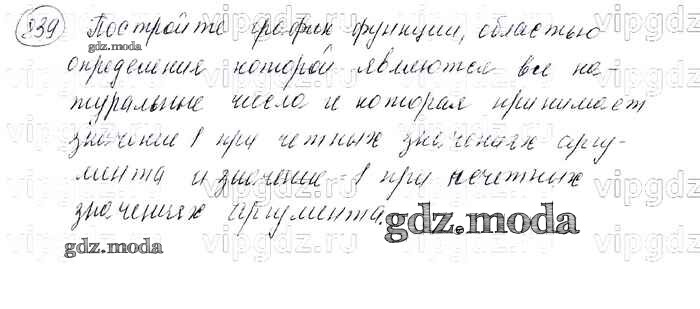 839 Постройте график функции, областью
gdz.moda
определения которой являются все на-
туральные числа и которая принимает
значение 1 при четных значениях аргу-
мента и значение -1 при нечетных
значениях аргумента.
gdz.moda
gdz.moda